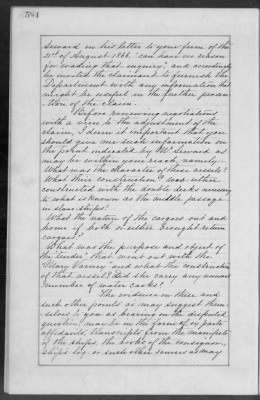 541
Seward in his letter to your firm of the
21st of August 1866, "can hear no reason
for evading that inquiry," and accordingly
he invited the claimant to furnish the
Department with any information that
might be useful in the further prosecu-
-tion of the claim.
Before renewing negotiations
with a view to the adjustment of the
claim, I deem it important that you
should give me such information on
the points indicated by Mr Seward as
may be within your reach, namely:-
What was the character of these vessels?
What their construction? Was either
constructed with the double decks necessary
to what is known as the middle passage
in slave ships?
What the nature of the cargoes out and
home if both or either brought return
cargoes?
What was the purpose and object of
the tender that went out with the
Mary Varney and what the construction
of that vessel? Did she carry any unusual
number of water casks?
The evidence on these and
such other points as may suggest them-
-selves to you as bearing on the disputed
question, may be in the form of ex parte
affidavits, transcripts from the manifests
of the ships, the books of the consignor-
ship's log, or such other sources as may